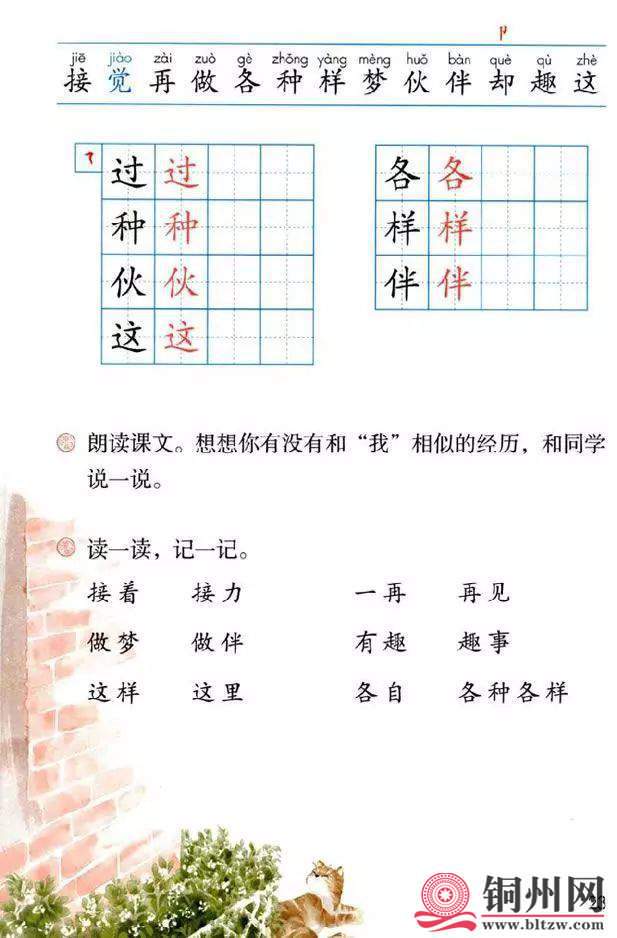 卩
jiē jiào zài zuò gè zhǒng yàng mèng huǒ bàn què qù zhè
接 觉 再 做 各 种 样 梦 伙 伴 却 趣 这
过 过
种 种
伙 伙
这 这
各 各
样 样
伴 伴
朗读课文。想想你有没有和“我”相似的经历，和同学
说一说。
读一读，记一记。
接着 接力 一再 再见
做梦 做伴 有趣 趣事
这样 这里 各自 各种各样
铜州网
www.bltzw.com